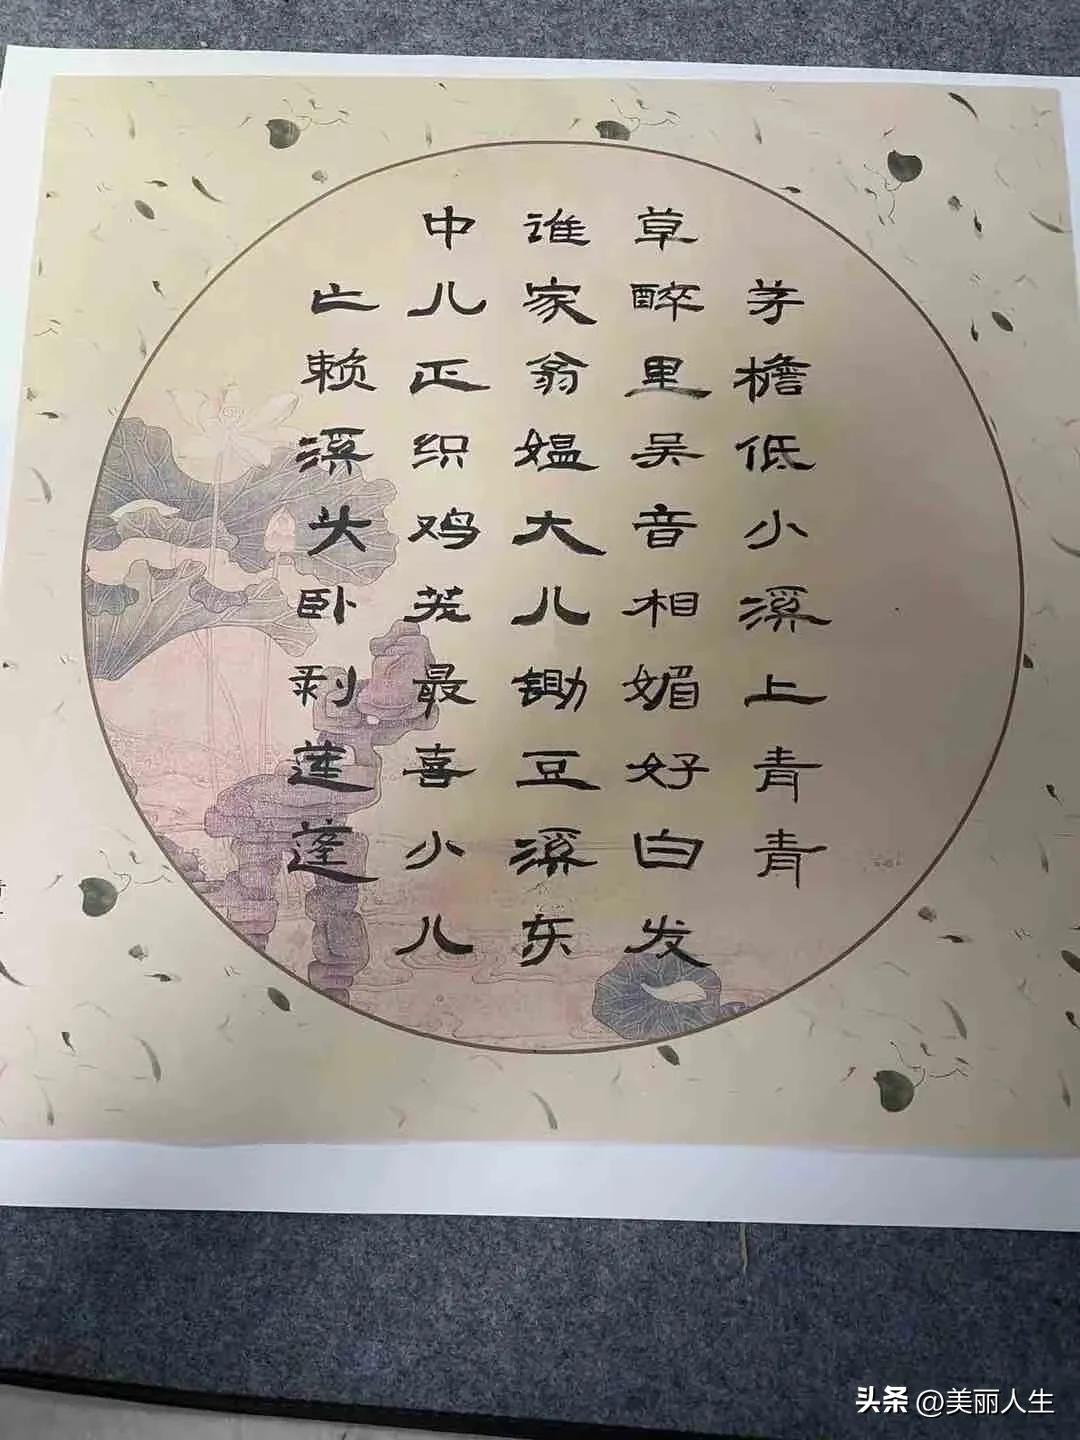 茅檐低小溪上青青
草醉里吴音相媚好白发
谁家翁媪大儿锄豆溪东
中儿正织鸡笼最喜小儿
亡赖溪头卧剥莲蓬
头条 @美丽人生